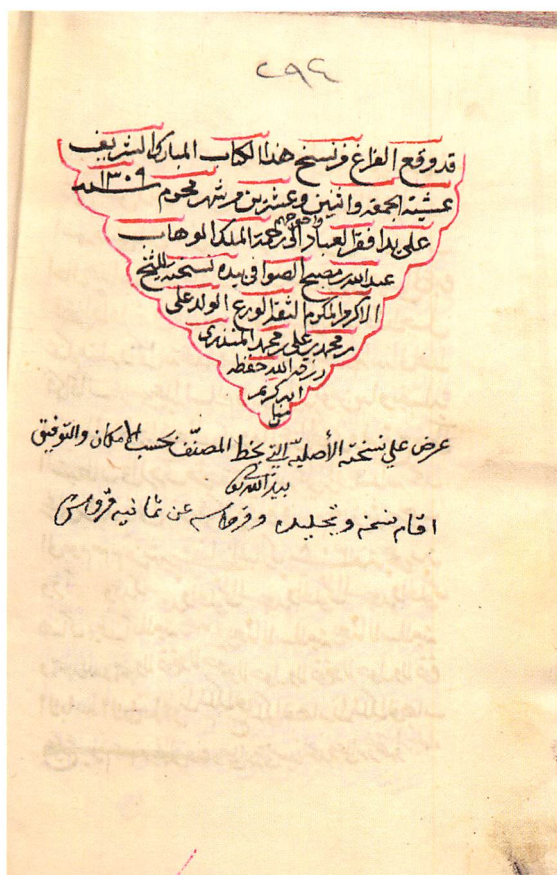 ٢٩٤
قد وقع الفراغ من نسخ هذا الكتاب المبارك الشريف
عشية الجمعة واثنين وعشرين من شهر محرم سنة ١٣٠٩
على يد افقر العباد واحوجهم الى رحمة الملك الوهاب
عبدالله بن مصبح الصوافي بيده نسخته للشيخ
الاكرم المكرم الثقة الورع الولد علي
بن محمد بن علي بن محمد المنذري
رزقه الله حفظه
انه كريم
منان
عرض على نسخته الأصلية التي بخط المصنّف بحسب الامكان والتوفيق
بيد الله
اقام نسخه وتجليده وقرطاسه عن ثمانية قروش